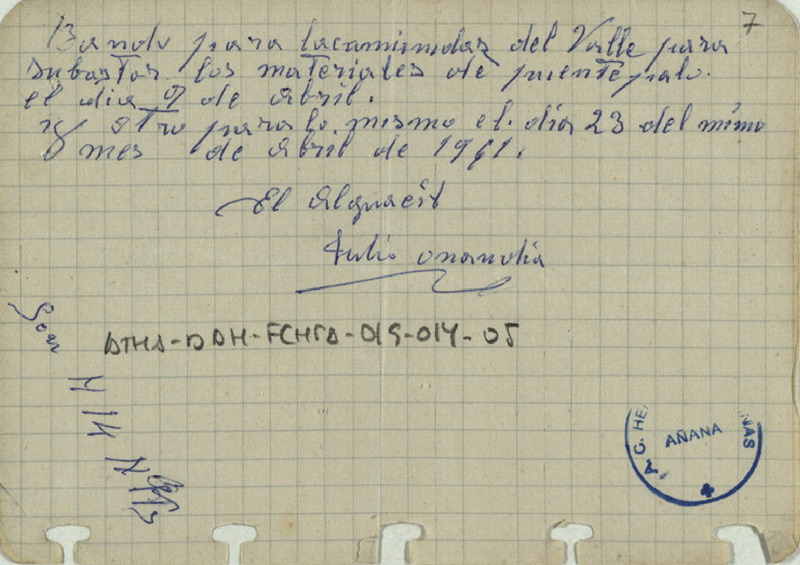 7
Bando para lacaminadas del Valle para
subastar los materiales de puentepalo.
el dia 9 de abril.
y otro para lo mismo el. dia 23 del mimo
mes de abril de 1961.
El Alguacil
Julio onandia
ATHA-DAH-FCHSA-019-014-05
C. HE NAS
AÑANA